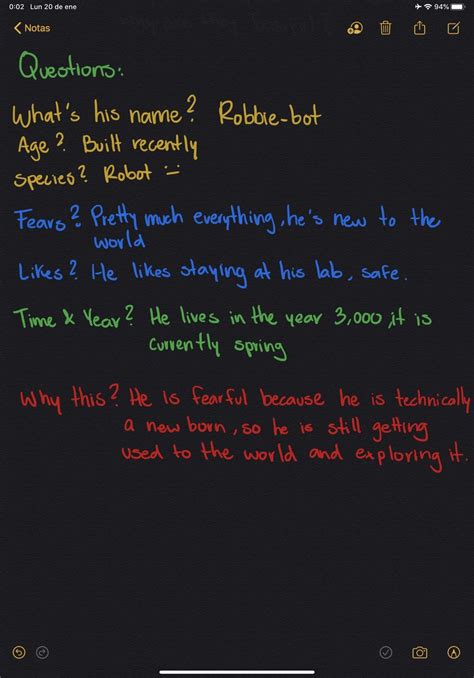 0:02 Lun 20 de ene
94%
Notas
Questions:
What's his name? Robbie-bot
Age? Built recently
Species? Robot :-
Fears? Pretty much everything, he's new to the
world
Likes? He likes staying at his lab, safe.
Time & Year? He lives in the year 3,000, it is
currently spring
Why this? He is fearful because he is technically
a new born, so he is still getting
used to the world and exploring it.